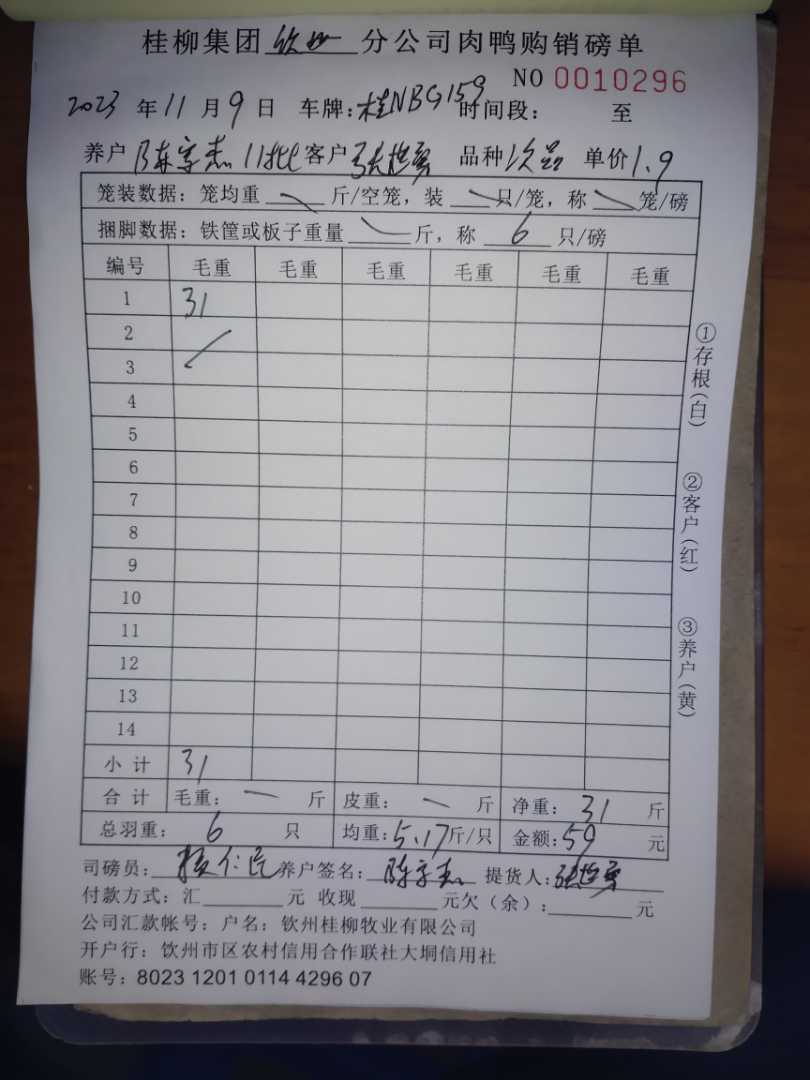 桂柳集团 钦州 分公司肉鸭购销磅单
NO 0010296
2023 年 11 月 9 日 车牌: 桂NBG159 时间段: 至
养户 陈字杰 11批 客户 张世勇 品种 次品 单价 1.9
笼装数据: 笼均重 斤/空笼, 装 只/笼, 称 笼/磅
捆脚数据: 铁筐或板子重量 斤, 称 6 只/磅
编号 毛重 毛重 毛重 毛重 毛重 毛重
1 31
2
3
4
5
6
7
8
9
10
11
12
13
14
小计 31
合计 毛重: 一 斤 皮重: 斤 净重: 31 斤
总羽重: 6 只 均重: 5.17 斤/只 金额: 59 元
司磅员: 仁民 养户签名: 陈字杰 提货人: 张世勇
付款方式: 汇 元 收现 元欠(余): 元
公司汇款帐号: 户名: 钦州桂柳牧业有限公司
开户行: 钦州市区农村信用合作联社大垌信用社
账号: 8023 1201 0114 4296 07
①存根(白)
②客户(红)
③养户(黄)